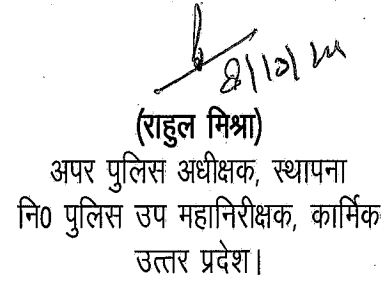 (राहुल मिश्रा)
अपर पुलिस अधीक्षक, स्थापना
नि0 पुलिस उप महानिरीक्षक, कार्मिक
उत्तर प्रदेश।